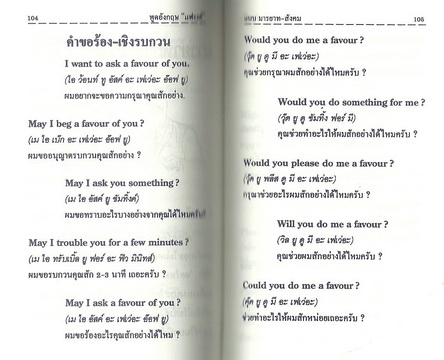 104
พูดอังกฤษ "แฟ
คำขอร้อง-เชิงรบกวน
I want to ask a favour of you.
(ไอ ว้อนท์ ทู อัสค์ อะ เฟเว่อะ อ๊อฟ ยู)
ผมอยากจะขอความกรุณาคุณสักอย่าง.
May I beg a favour of you ?
(เม ไอ เบ็ก อะ เฟเว่อะ อ๊อฟ ยู)
ผมขออนุญาตรบกวนคุณสักอย่าง ?
May I ask you something ?
(เม ไอ อัสค์ ยู ซัมทิ้งค์)
ผมขอทราบอะไรบางอย่างจากคุณได้ไหมครับ
May I trouble you for a few minutes ?
(เม ไอ ทรับเบิ้ล ยู ฟอร์ อะ ฟิว มินิทส์)
ผมขอรบกวนคุณสัก 2-3 นาที เถอะครับ ?
May I ask a favour of you ?
(เม ไอ อัสค์ อะ เฟเว่อะ อ๊อฟ ยู)
ผมขอร้องอะไรคุณสักอย่างได้ไหม ?
แบบ มารยาท-สังคม
105
Would you do me a favour ?
(วู๊ด ยู ดู มี อะ เฟเว่อะ)
คุณช่วยกรุณาผมสักอย่างได้ไหมครับ ?
Would you do something for me ?
(วู๊ด ยู ดู ซัมทิ้ง ฟอร์ มี)
คุณช่วยทำอะไรให้ผมสักอย่างได้ไหมครับ ?
Would you please do me a favour ?
(วู๊ด ยู พลีส ดู มี อะ เฟเว่อะ)
กรุณาช่วยอะไรผมสักอย่างได้ไหมครับ ?
Will you do me a favour ?
(วิล ยู ดู มี อะ เฟเว่อะ)
คุณช่วยผมสักอย่างได้ไหมครับ ?
Could you do me a favour ?
(คู๊ด ยู ดู มี อะ เฟเว่อะ)
ช่วยทำอะไรให้ผมสักหน่อยเถอะครับ ?